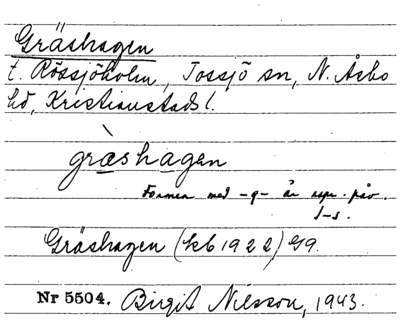 Gräshagen
t. Rössjöholm, Tossjö sn, N. Åsbo
hd, Kristianstads l.
græ̀shagen
Formen med -g- är repr. påv.
l-s.
Gräshagen (kb 1922) G9.
Nr 5504. Birgit Nilsson, 1943.